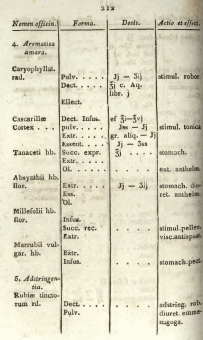 212
Nomen officin. Forma. Dosis. Actio et effect.
4. Aromatica amara.
Caryophyllat. rad. Pulv. . . . . ℨj — ℨij stimul. robor.
Dect. . . . . ℥j c. Aq. libr. j
Ellect.
Cascarillae Dect. Infus. ef ℥i—℥vj
Cortex . . . pulv. . . . . ℨss — ℨj stimul. tonica
Extr. . . . . gr. aliq. — ℨj
Essent. . . . ℨj — ℥ss
Tanaceti hb. Succ. expr. ℥j . . . . stomach.
Extr. . . . .
Ol. . . . . . ext. anthelm.
Absynthii hb. flor. Extr. . . . . ℨj — ℨij stomach. diuret. anthelm.
Ess.
Ol.
Millefolii hb. flor. Infus.
Succ. rec. stimul. pellen.
Extr. visc. antispast.
Marrubii vulgar. hb. Extr.
Infus. stomach. pect.
5. Adstringentia.
Rubiae tinctorum rd. Dect. . . . . adstring. rob. diuret. emmenagoga.
Pulv.